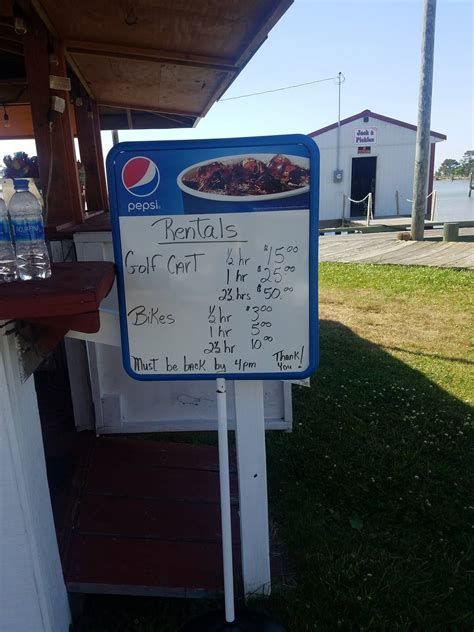 Jack &
Pickles
pepsi
Rentals
Golf Cart ½ hr $15.00
1 hr $25.00
2½ hrs $50.00
Bikes ½ hr $3.00
1 hr 5.00
2½ hr 10.00
Must be back by 4pm Thank
You!